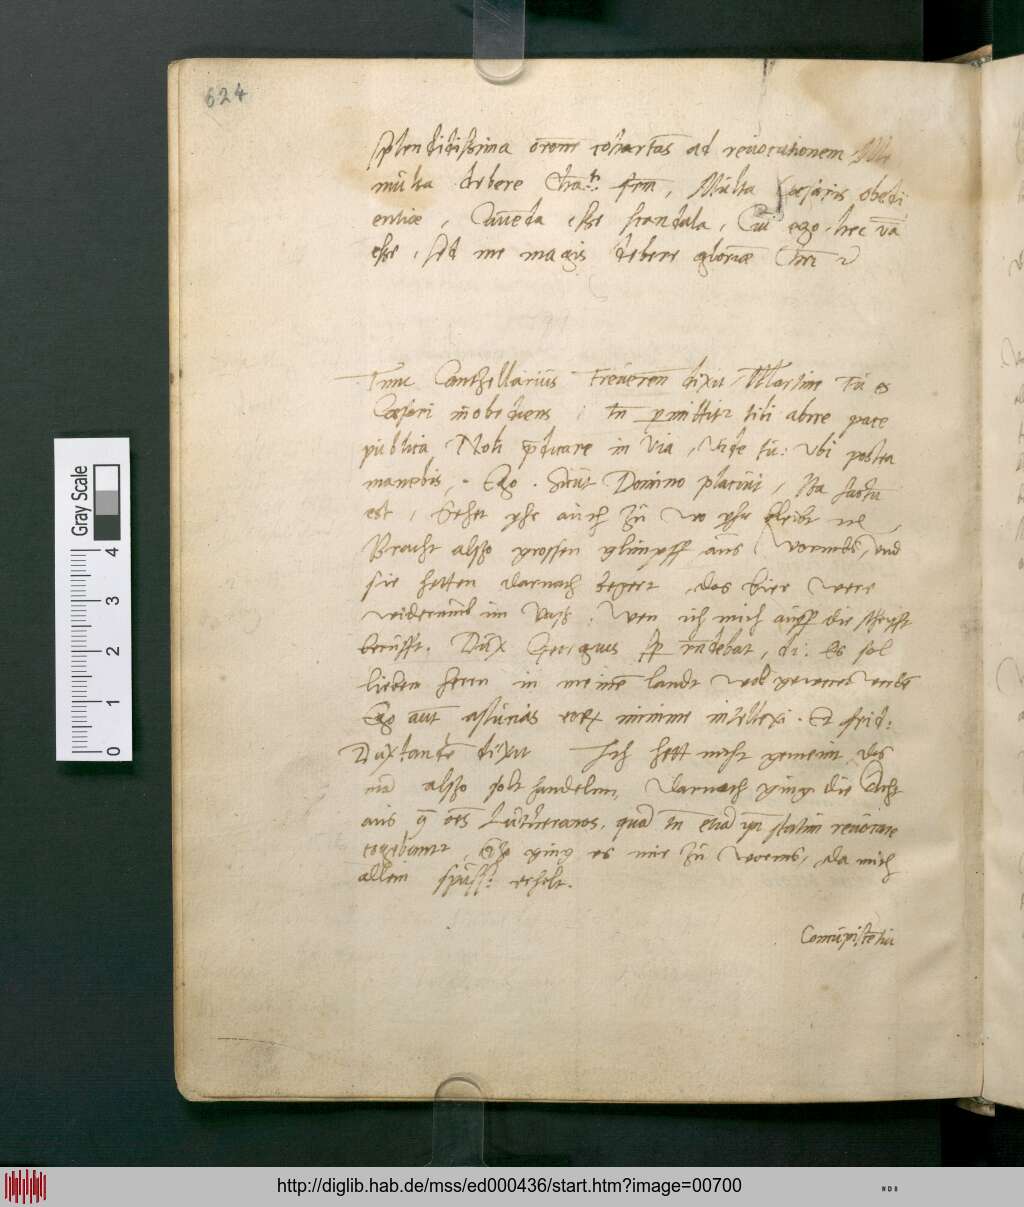 624
splendidissima orõne cohortãs ad reuocationem. Me
multa debere frm̃, Multa Cæsaris obedi
entiæ, Cauenda esse scandala, Cui ego. hec va
esse, sed me magis debere gloriæ Chri
Tunc Canthellarius Treueren dixit, Martine Tu es
Cæsari inobediens, tñ permittitur tibi abire pace
publica. Noli predicare in via, vide tu. vbi postea
manebis. Ego. Sicut Domino placuit, Ita factũ
est, sehet yhr auch zu wo yhr bleibt
Bracht also grossen glimpff aus Wormbs, vnd
sie hetten darnach begert, das bier were
widerumb im vaß. Wen ich mich auff die schrifft
berufft. Dux Georgius ridebat, Es sol
lieben hern in meinẽ landt wol
Ego aut astucias eorum minime intellexi. Et frid:
Dux tandẽ dixit Ich hett nicht gemeint das
mã also solt handeln. Darnach ging die Acht
aus oẽs Lutheranos. quã tñ etiã statim reuocare
cogebantur, Also ging es mir zu Worms, da mich
allein erhelt.
Concupiscentia
Gray Scale
0 1 2 3 4
http://diglib.hab.de/mss/ed000436/start.htm?image=00700